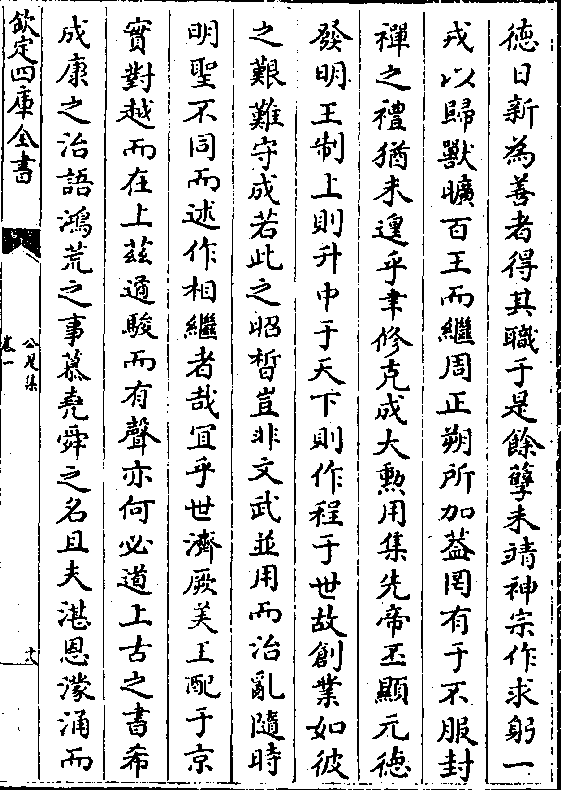 徳日新為善者得其職于是餘孽未靖神宗作求躬一
戎以歸獸曠百王而繼周正朔所加蓋罔有于不服封
禪之禮猶未遑乎聿修克成大勲用集先帝丕顯元徳
發明王制上則升中于天下則作程于世故創業如彼
之艱難守成若此之昭晳豈非文武並用而治亂隨時
明聖不同而述作相繼者哉宜乎世濟厥美王配于京
實對越而在上茲遹駿而有聲亦何必道上古之書希
成康之治語鴻荒之事慕堯舜之名且夫湛恩濛涌而
欽定四庫全書
公是集
卷一
十六